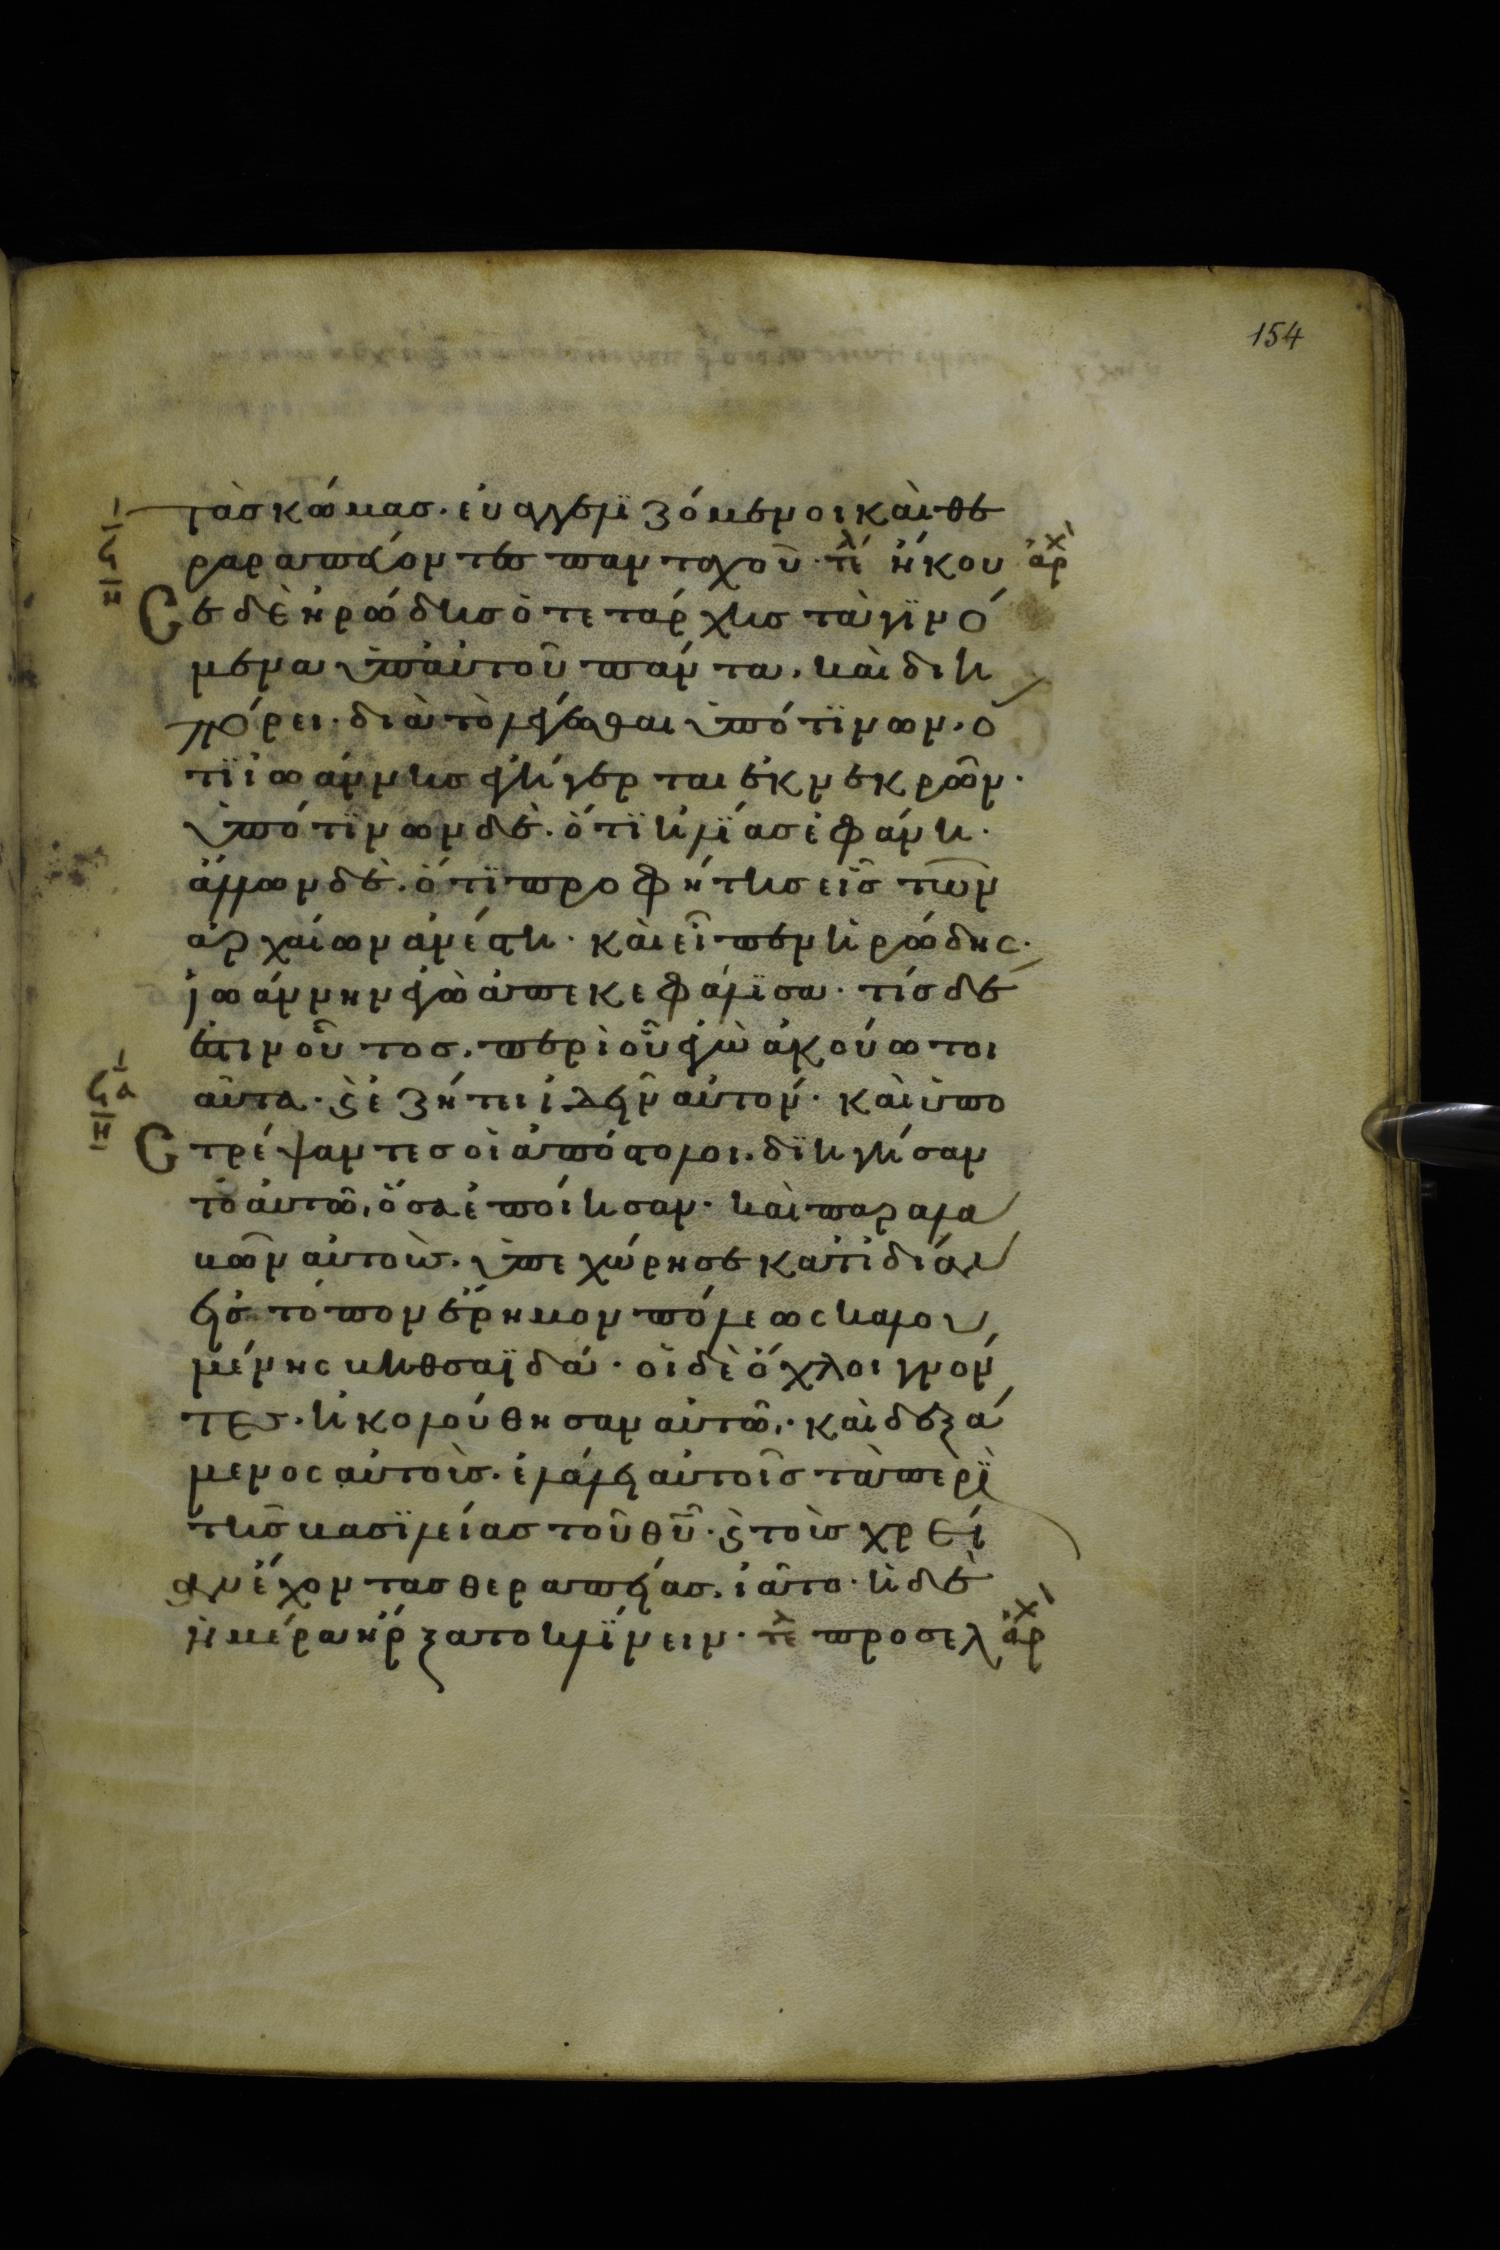 154
τὰσ κώμασ. εὐαγγελϊζόμενοι καὶ θε
ραπεύοντεσ πανταχοῦ· τέλ ἤκου ἀρχ
σε δὲ ἡρώδησ ὁ τετάρχησ τὰ γϊνό
μενα ὑπ αὐτοῦ πάντα. καὶ διη
πόρει. διὰ τὸ λέγεσθαι ὑπό τϊνων. ὅ
τϊ ἰωάννησ ἐγήγερται ἐκ νεκρῶν.
ὑπό τϊνων δὲ. ὅτϊ ἡλϊασ ἐφάνη.
ἄλλων δὲ. ὅτϊ προφήτησ εἷσ τῶν
ἀρχαίων ἀνέστη. καὶ εἶπεν ἡρώδης.
ἰωάννην ἐγὼ ἀπεκεφάλϊσα. τίσ δέ
ἐστιν οὗτοσ. περὶ οὗ ἐγὼ ἀκούω τοι
αῦτα. ϗ ἐζήτει ἰδεῖν αὐτον. καὶ ὑπο
στρέψαντεσ οἱ ἀπόστολοι. δϊηγήσαν
το αὐτῶ, ὅσα ἐποίησαν. καὶ παραλα
βὼν αὐτοὺσ. ὑπεχώρησε κατ ἰδίαν
εἰσ τόπον ἔρημον πόλεως καλου
μένης βηθσαϊδά. οἱ δὲ ὄχλοι γνόν
τεσ. ἠκολούθησαν αὐτῶ. καὶ δεξά
μενος αὐτοὺσ. ἐλάλει αὐτοῖσ τὰ περὶ
τῆσ βασϊλείασ τοῦ θῦ. ϗ τοὺσ χρεί
αν ἔχοντασ θεραπείασ. ἰᾶτο. ἡ δὲ
ἡμέρα ἤρξατο κλϊνειν. τέλ προσελ ἀρχ